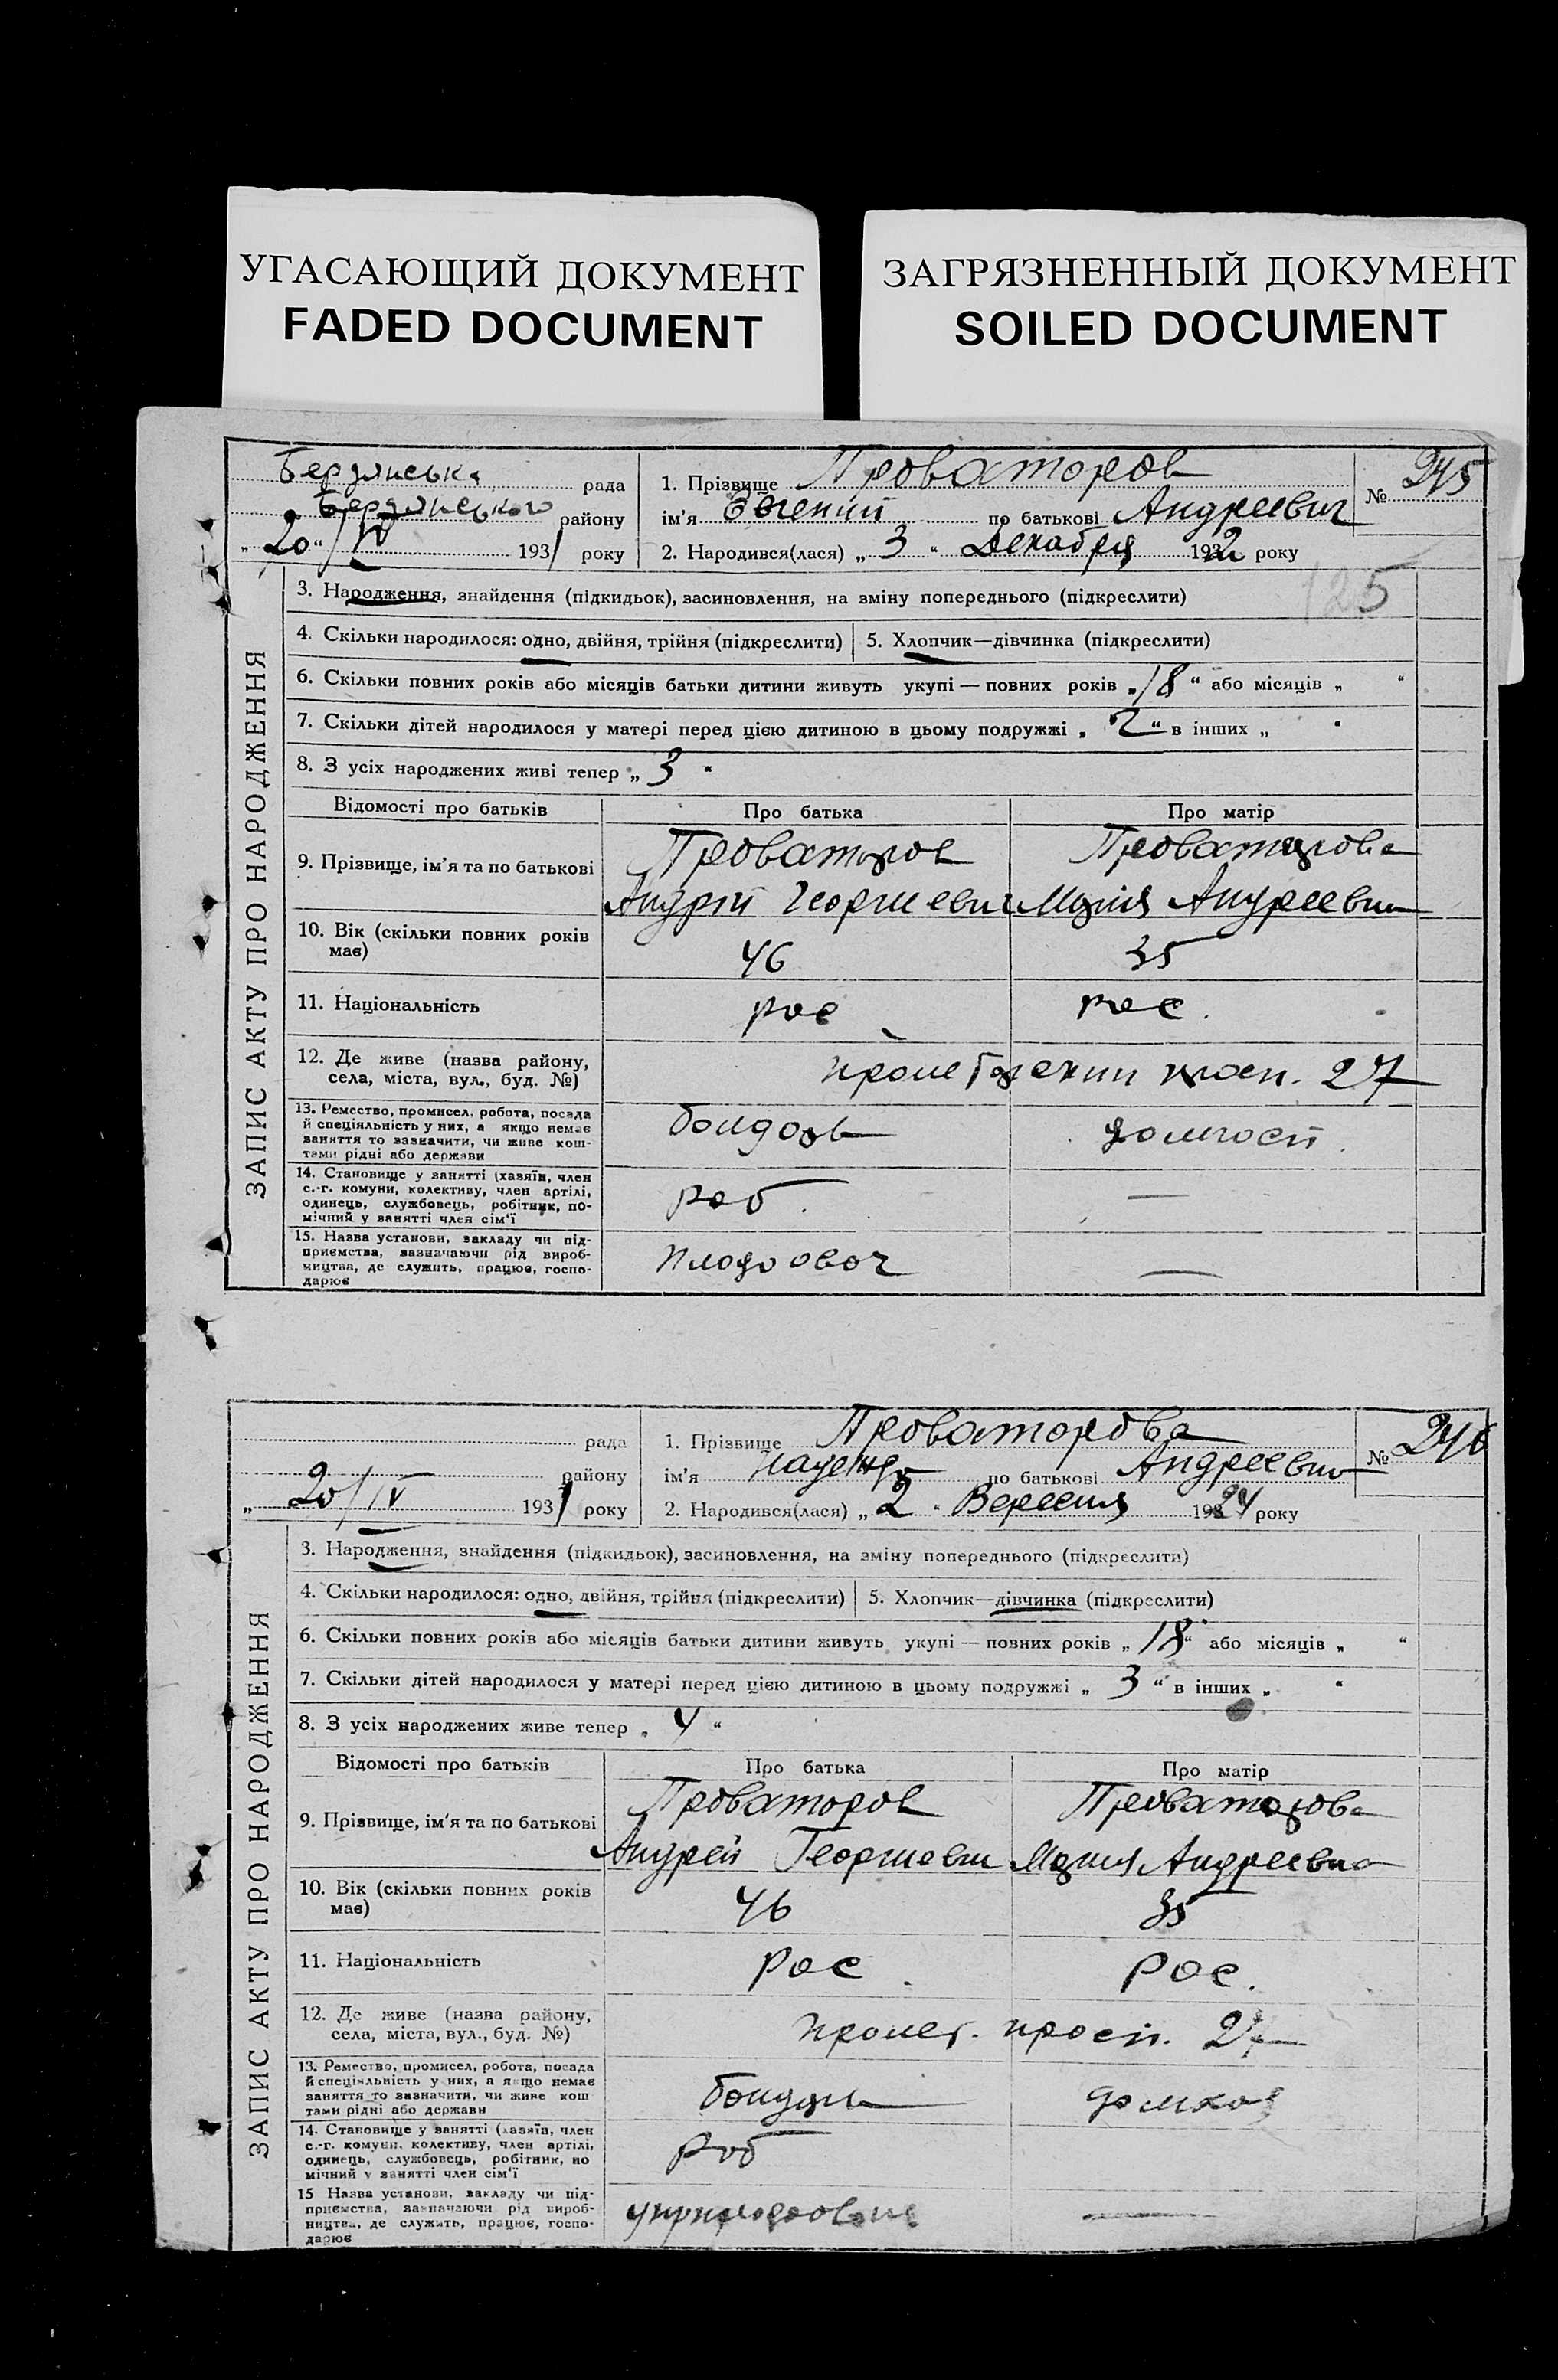 УГАСАЮЩИЙ ДОКУМЕНТ
FADED DOCUMENT
ЗАГРЯЗНЕННЫЙ ДОКУМЕНТ
SOILED DOCUMENT
Бердянська рада
Бердянського району
„20“/IV 1931 року
1. Прізвище Проваторов
ім'я Евгений по батькові Андреевич
2. Народився(лася) „3“ Декабря 1922 року
№ 245
125
ЗАПИС АКТУ ПРО НАРОДЖЕННЯ
3. Народження, знайдення (підкидьок), засиновлення, на зміну попереднього (підкреслити)
4. Скільки народилося: одно, двійня, трійня (підкреслити) 5. Хлопчик—дівчинка (підкреслити)
6. Скільки повних років або місяців батьки дитини живуть укупі — повних років „18“ або місяців „ “
7. Скільки дітей народилося у матері перед цією дитиною в цьому подружжі „2“ в інших „ “
8. З усіх народжених живі тепер „3“
Відомості про батьків Про батька Про матір
9. Прізвище, ім'я та по батькові Проваторов Проваторова
Андрій Георгиевич Мария Андреевна
10. Вік (скільки повних років
має) 46 35
11. Національність рос рос.
12. Де живе (назва району,
села, міста, вул., буд. №) просп. 27
13. Ремество, промисел, робота, посада
й спеціяльність у них, а якщо немає
заняття то зазначити, чи живе кош-
тами рідні або держави
бондарь домгосп.
14. Становище у занятті (хазяїн, член
с.-г. комуни, колективу, член артілі,
одинець, службовець, робітник, по-
мічний у занятті член сім'ї
роб. —
15. Назва установи, закладу чи під-
приємства, зазначаючи рід вироб-
ництва, де служить, працює, госпо-
дарює
Плодоовоч —
рада
району
„20/IV 1931 року
1. Прізвище Проваторова
ім'я Надежда по батькові Андреевна
2. Народився(лася) „2“ Вересня 1924 року
№ 246
ЗАПИС АКТУ ПРО НАРОДЖЕННЯ
3. Народження, знайдення (підкидьок), засиновлення, на зміну попереднього (підкреслити)
4. Скільки народилося: одно, двійня, трійня (підкреслити) 5. Хлопчик—дівчинка (підкреслити)
6. Скільки повних років або місяців батьки дитини живуть укупі — повних років „18“ або місяців „ “
7. Скільки дітей народилося у матері перед цією дитиною в цьому подружжі „3“ в інших „ “
8. З усіх народжених живе тепер „4“
Відомості про батьків Про батька Про матір
9. Прізвище, ім'я та по батькові Проваторов Проваторова
Андрей Георгиевич Мария Андреевна
10. Вік (скільки повних років
має) 46 35
11. Національність рос. рос.
12. Де живе (назва району,
села, міста, вул., буд. №) пролет. просп. 27
13. Ремество, промисел, робота, посада
й спеціяльність у них, а якщо немає
заняття то зазначити, чи живе кош
тами рідні або держави
бондарь домхоз
14. Становище у занятті (хазяїн, член
с.-г. комуни, колективу, член артілі,
одинець, службовець, робітник, по
мічний у занятті член сім'ї
Роб
15 Назва установи, закладу чи під-
приємства, зазначаючи рід вироб-
ництва, де служить, працює, госпо-
дарює
—